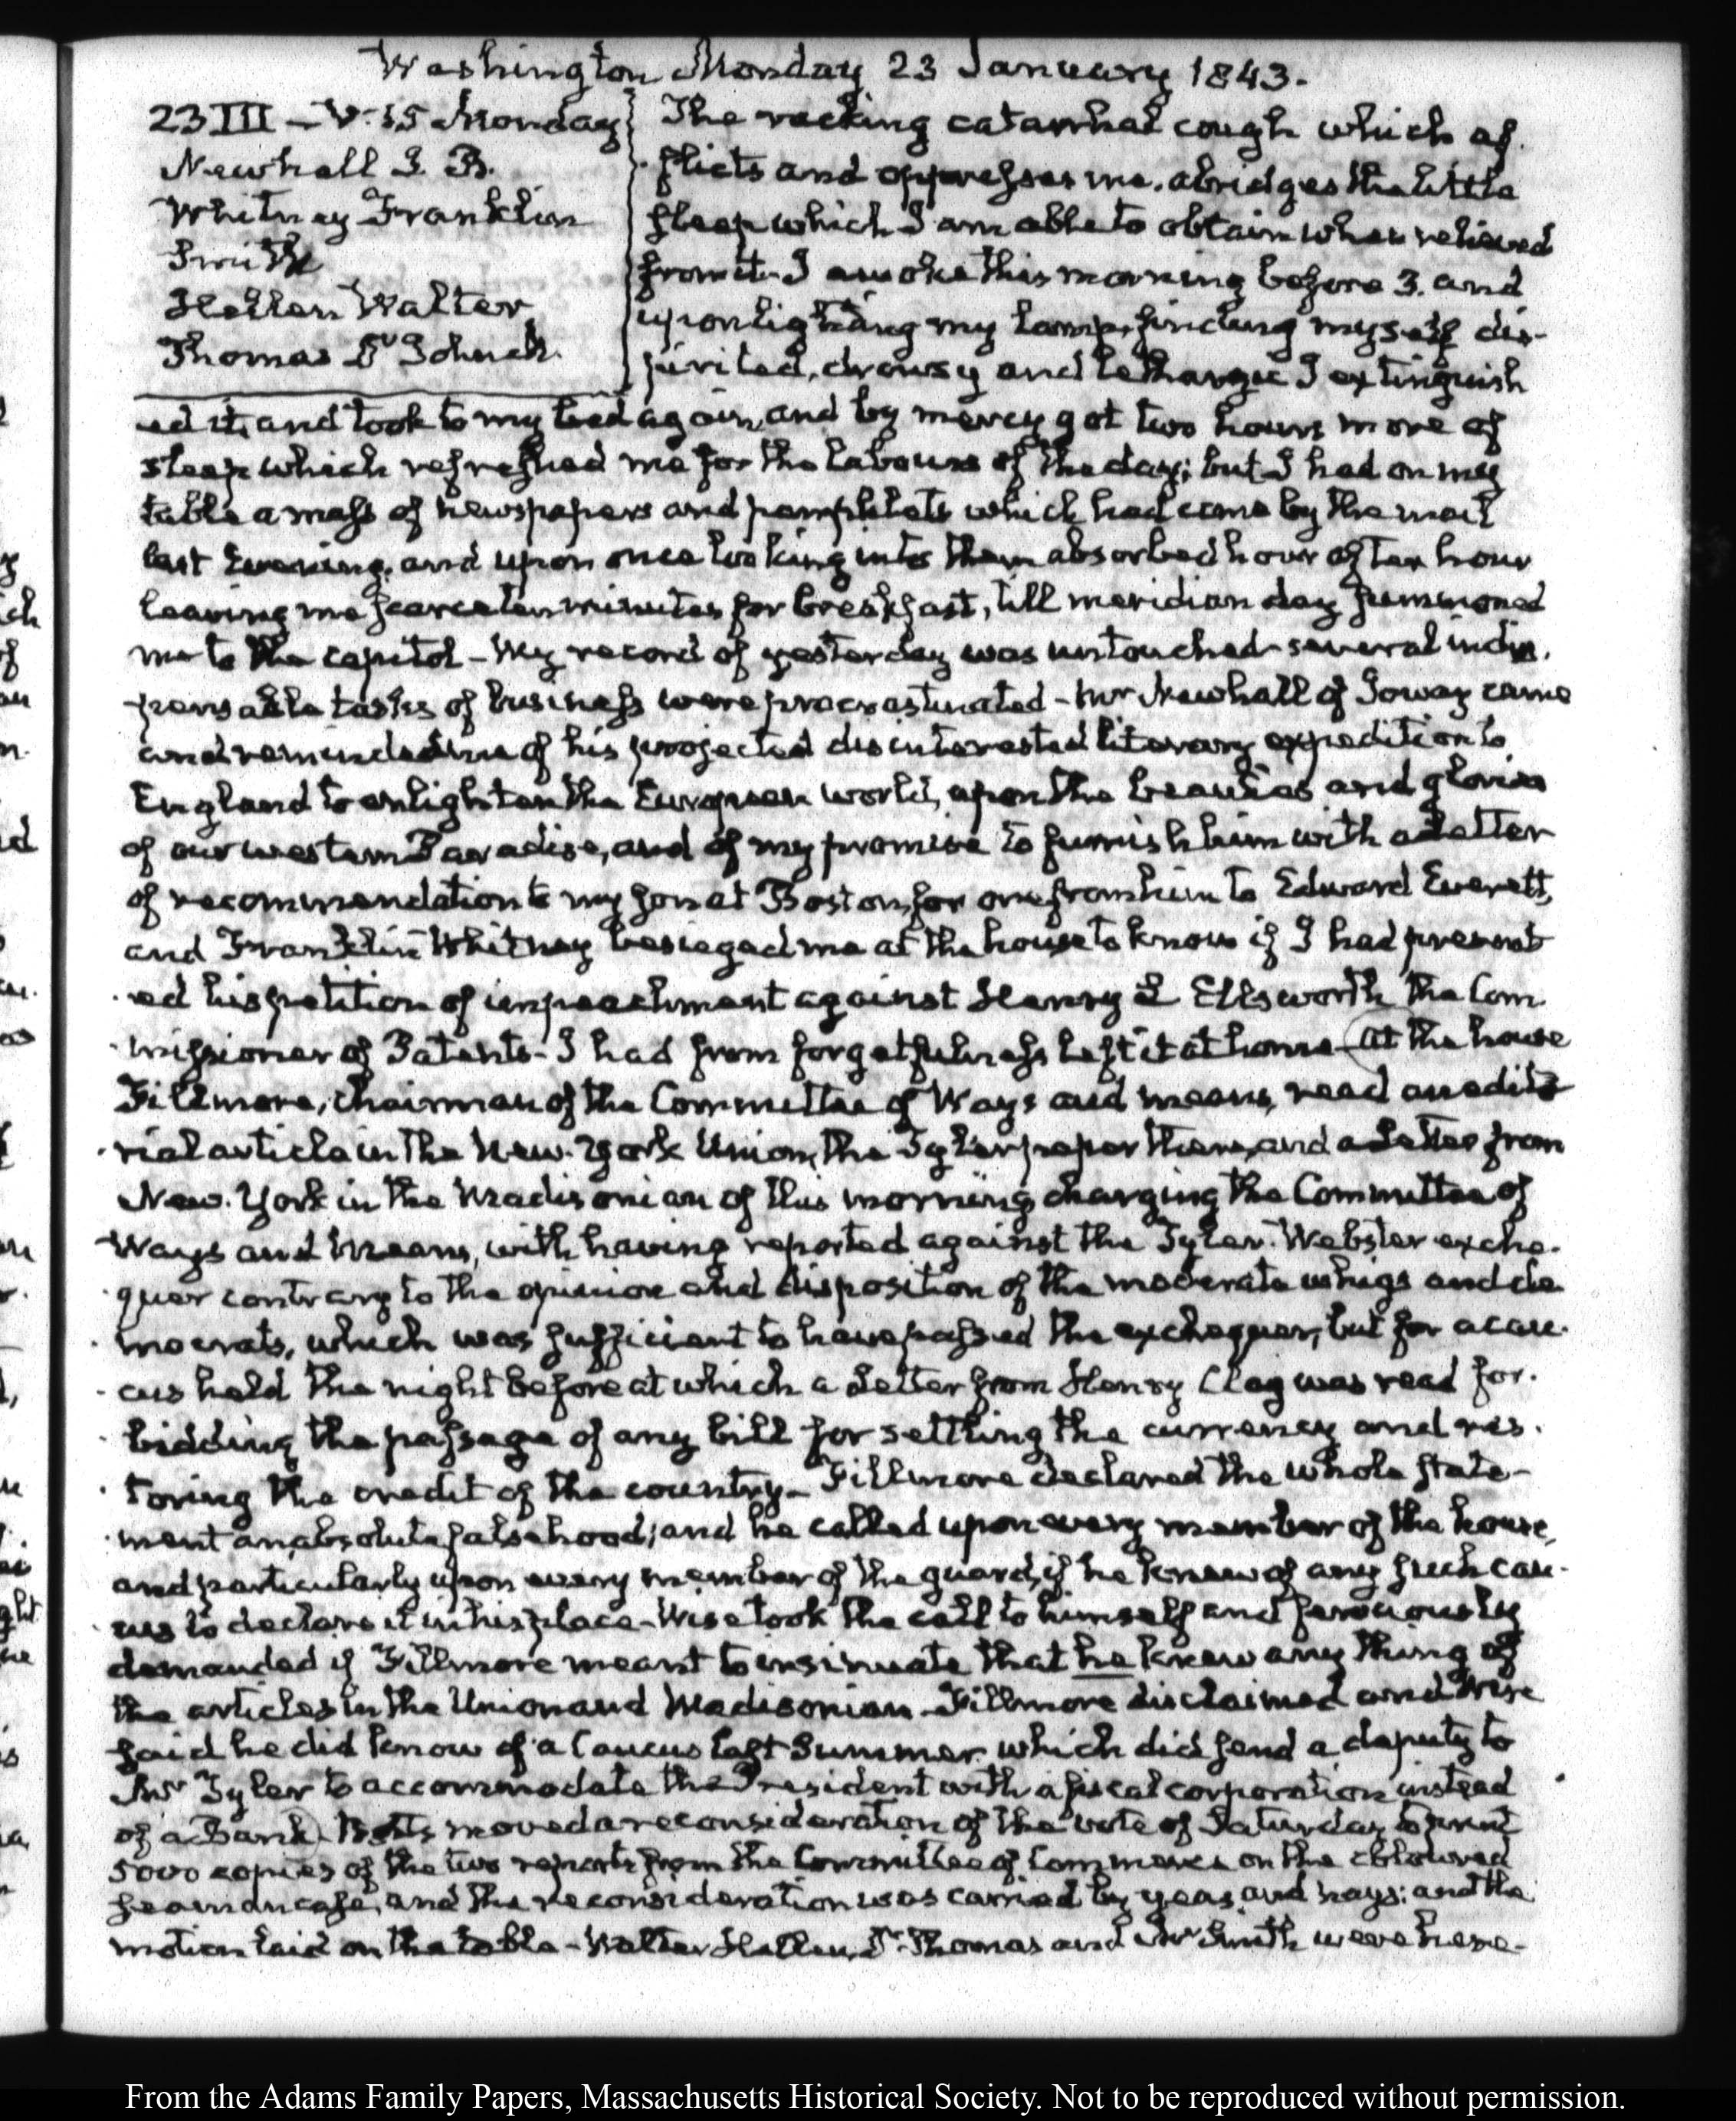 Washington Monday 23 January 1843.
23 III – V. 15 Monday
Newhall I. B.
Whitney Franklin
Smith
Hellen Walter
Thomas Dr Johnch.
The racking catarrhal cough which af
flicts and oppresses me, abridges the little
sleep which I am able to obtain when relieved
from it. I awoke this morning before 3. and
upon lighting my lamp, finding myself dis-
pirited, drowsy and lethargic I extinguish
ed it, and took to my bed again, and by mercy got two hours more of
sleep which refreshed me for the labours of the day; but I had on my
table a mass of newspapers and pamphlets which had come by the mail
last Evening, and upon once looking into them absorbed hour after hour
leaving me scarce ten minutes for breakfast, till meridian day summoned
me to the capitol – My record of yesterday was untouched – several indis.
pensable tasks of business were procrastinated – Mr Newhall of Ioway came
and reminded me of his projected disinterested literary expedition to
England to enlighten the European world, upon the beauties and glories
of our western Paradise, and of my promise to furnish him with a Letter
of recommendation to my son at Boston, for one from him to Edward Everett,
and Franklin Whitney besieged me at the house to know if I had present
ed his petition of impeachment against Henry L Ellsworth the Com
missioner of Patents – I had from forgetfulness left it at home – At the house
Fillmore, Chairman of the Committee of Ways and means, read an edito
rial article in the New-York Union, the Tyler paper there, and a Letter from
New-York in the Madisonian of this morning charging the Committee of
Ways and Means, with having reported against the Tyler-Webster exche-
quer contrary to the opinion and disposition of the moderate whigs and de
mocrats, which was sufficient to have passed the exchequer, but for a cau-
cus held the night before at which a Letter from Henry Clay was read for-
bidding the passage of any bill for settling the currency and res-
toring the credit of the country – Fillmore declared the whole state-
ment an absolute falsehood; and he called upon every member of the house,
and particularly upon every member of the guard, if he knew of any such cau-
cus to declare it in his place – Wise took the call to himself and ferociously
demanded if Fillmore meant to insinuate that he knew any thing of
the articles in the Union and Madisonian – Fillmore disclaimed and Wise
said he did know of a Caucus last Summer which did send a deputy to
Mr Tyler to accommodate the President with a fiscal corporation instead
of a Bank – Botts moved a reconsideration of the vote of Saturday to print
5000 copies of the two reports from the Committee of Commerce on the coloured
seaman case, and the reconsideration was carried by yeas and nays: and the
motion laid on the table – Walter Hellen, Dr Thomas and Mr Smith were here –
From the Adams Family Papers, Massachusetts Historical Society. Not to be reproduced without permission.